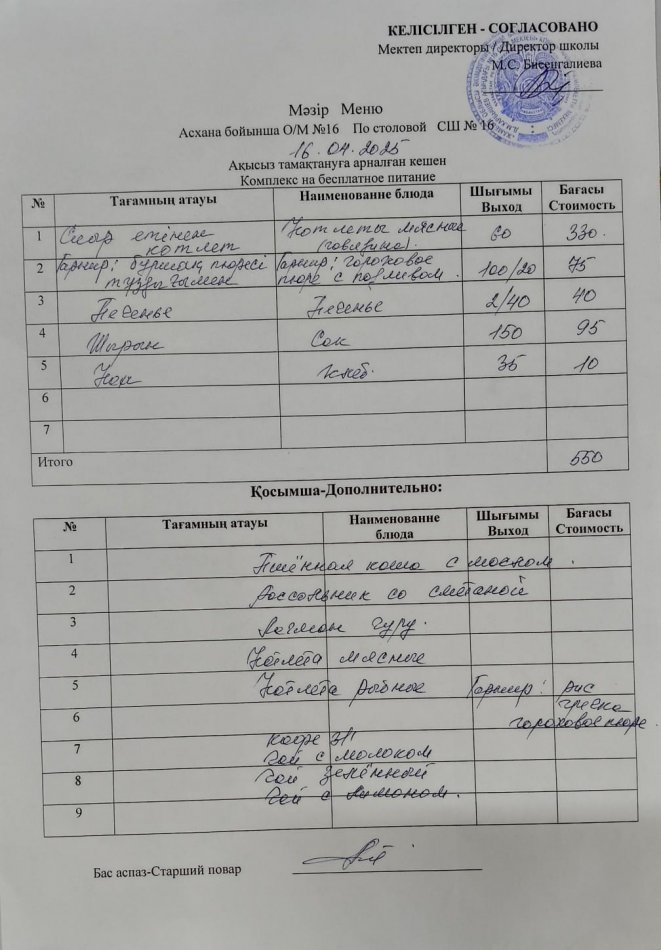 КЕЛІСІЛГЕН - СОГЛАСОВАНО
Мектеп директоры / Директор школы
М.С. Бисенгалиева
Мәзір Меню
Асхана бойынша О/М №16 По столовой СШ № 16
16.04.2025
Ақысыз тамақтануға арналған кешен
Комплекс на бесплатное питание
№ Тағамның атауы Наименование блюда Шығымы Выход Бағасы Стоимость
1 Сиыр етінен котлет Котлеты мясные (говядина). 60 330.
2 Гарнир: бұршақ пюресі тұздығымен Гарнир: гороховое пюре с подливом. 100/20 75
3 Печенье Печенье 2/40 40
4 Шырын Сок 150 95
5 Нан хлеб. 35 10
6
7
Итого 550
Қосымша-Дополнительно:
№ Тағамның атауы Наименование блюда Шығымы Выход Бағасы Стоимость
1 Пшённая каша с маслом.
2 Рассольник со сметаной
3 Лагман гуру.
4 Котлета мясные
5 Котлета рыбные Гарнир: рис
гречка
6 гороховое пюре.
7 кофе 3/1
чай с молоком
8 чай зелённый
чай с лимоном.
9
Бас аспаз-Старший повар